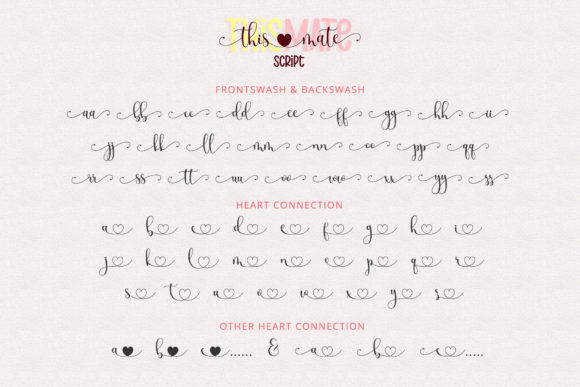 THISMATE
this♥mate
SCRIPT
FRONTSWASH & BACKSWASH
aa bb cc dd ee ff gg hh ii
jj kk ll mm nn oo pp qq
rr ss tt uu vv ww xx yy zz
HEART CONNECTION
a♡ b♡ c♡ d♡ e♡ f♡ g♡ h♡ i♡
j♡ k♡ l♡ m♡ n♡ o♡ p♡ q♡ r♡
s♡ t♡ u♡ v♡ w♡ x♡ y♡ z♡
OTHER HEART CONNECTION
a♥ b♥ c♥...... & a♡ b♡ c♡.....